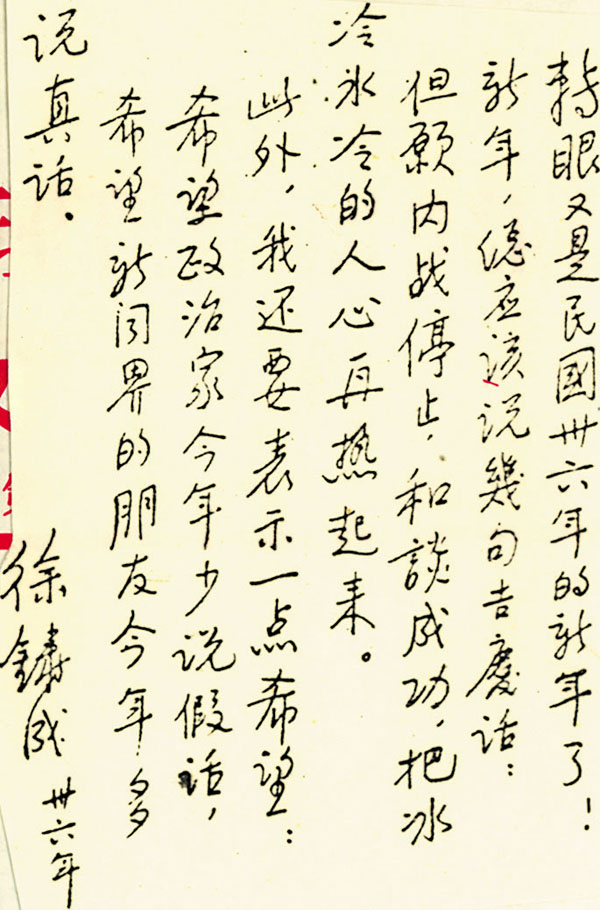 轉眼又是民國卅六年的新年了!
新年,總应该说幾句吉慶话:
但願内战停止,和談成功,把冰
冷冰冷的人心再热起来。
此外,我还要表示一点希望:
希望政治家今年少说假话,
希望新闻界的朋友今年多
说真话.
徐鑄成 卅六年